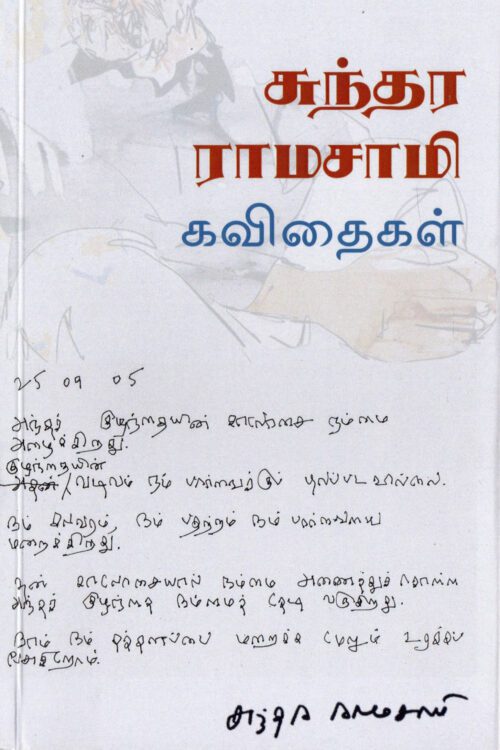 சுந்தர
ராமசாமி
கவிதைகள்
25 09 05
அந்தக் குழந்தையின் காலோசை நம்மை
அழைக்கிறது.
குழந்தையின்
அதன் / வடிவம் நம் பார்வைக்குப் புலப்படவில்லை.
நம் கலவரம், நம் பதற்றம் நம் பார்வையை
மறைக்கிறது.
தன் காலோசையால் நம்மை அணைத்துக்கொள்ள
அந்தக் குழந்தை நம்மைத் தேடி வருகிறது.
நாம் நம் பதற்றத்தை மறைக்க மேலும் உரக்கப்
பேசுகிறோம்.
சுந்தர ராமசாமி